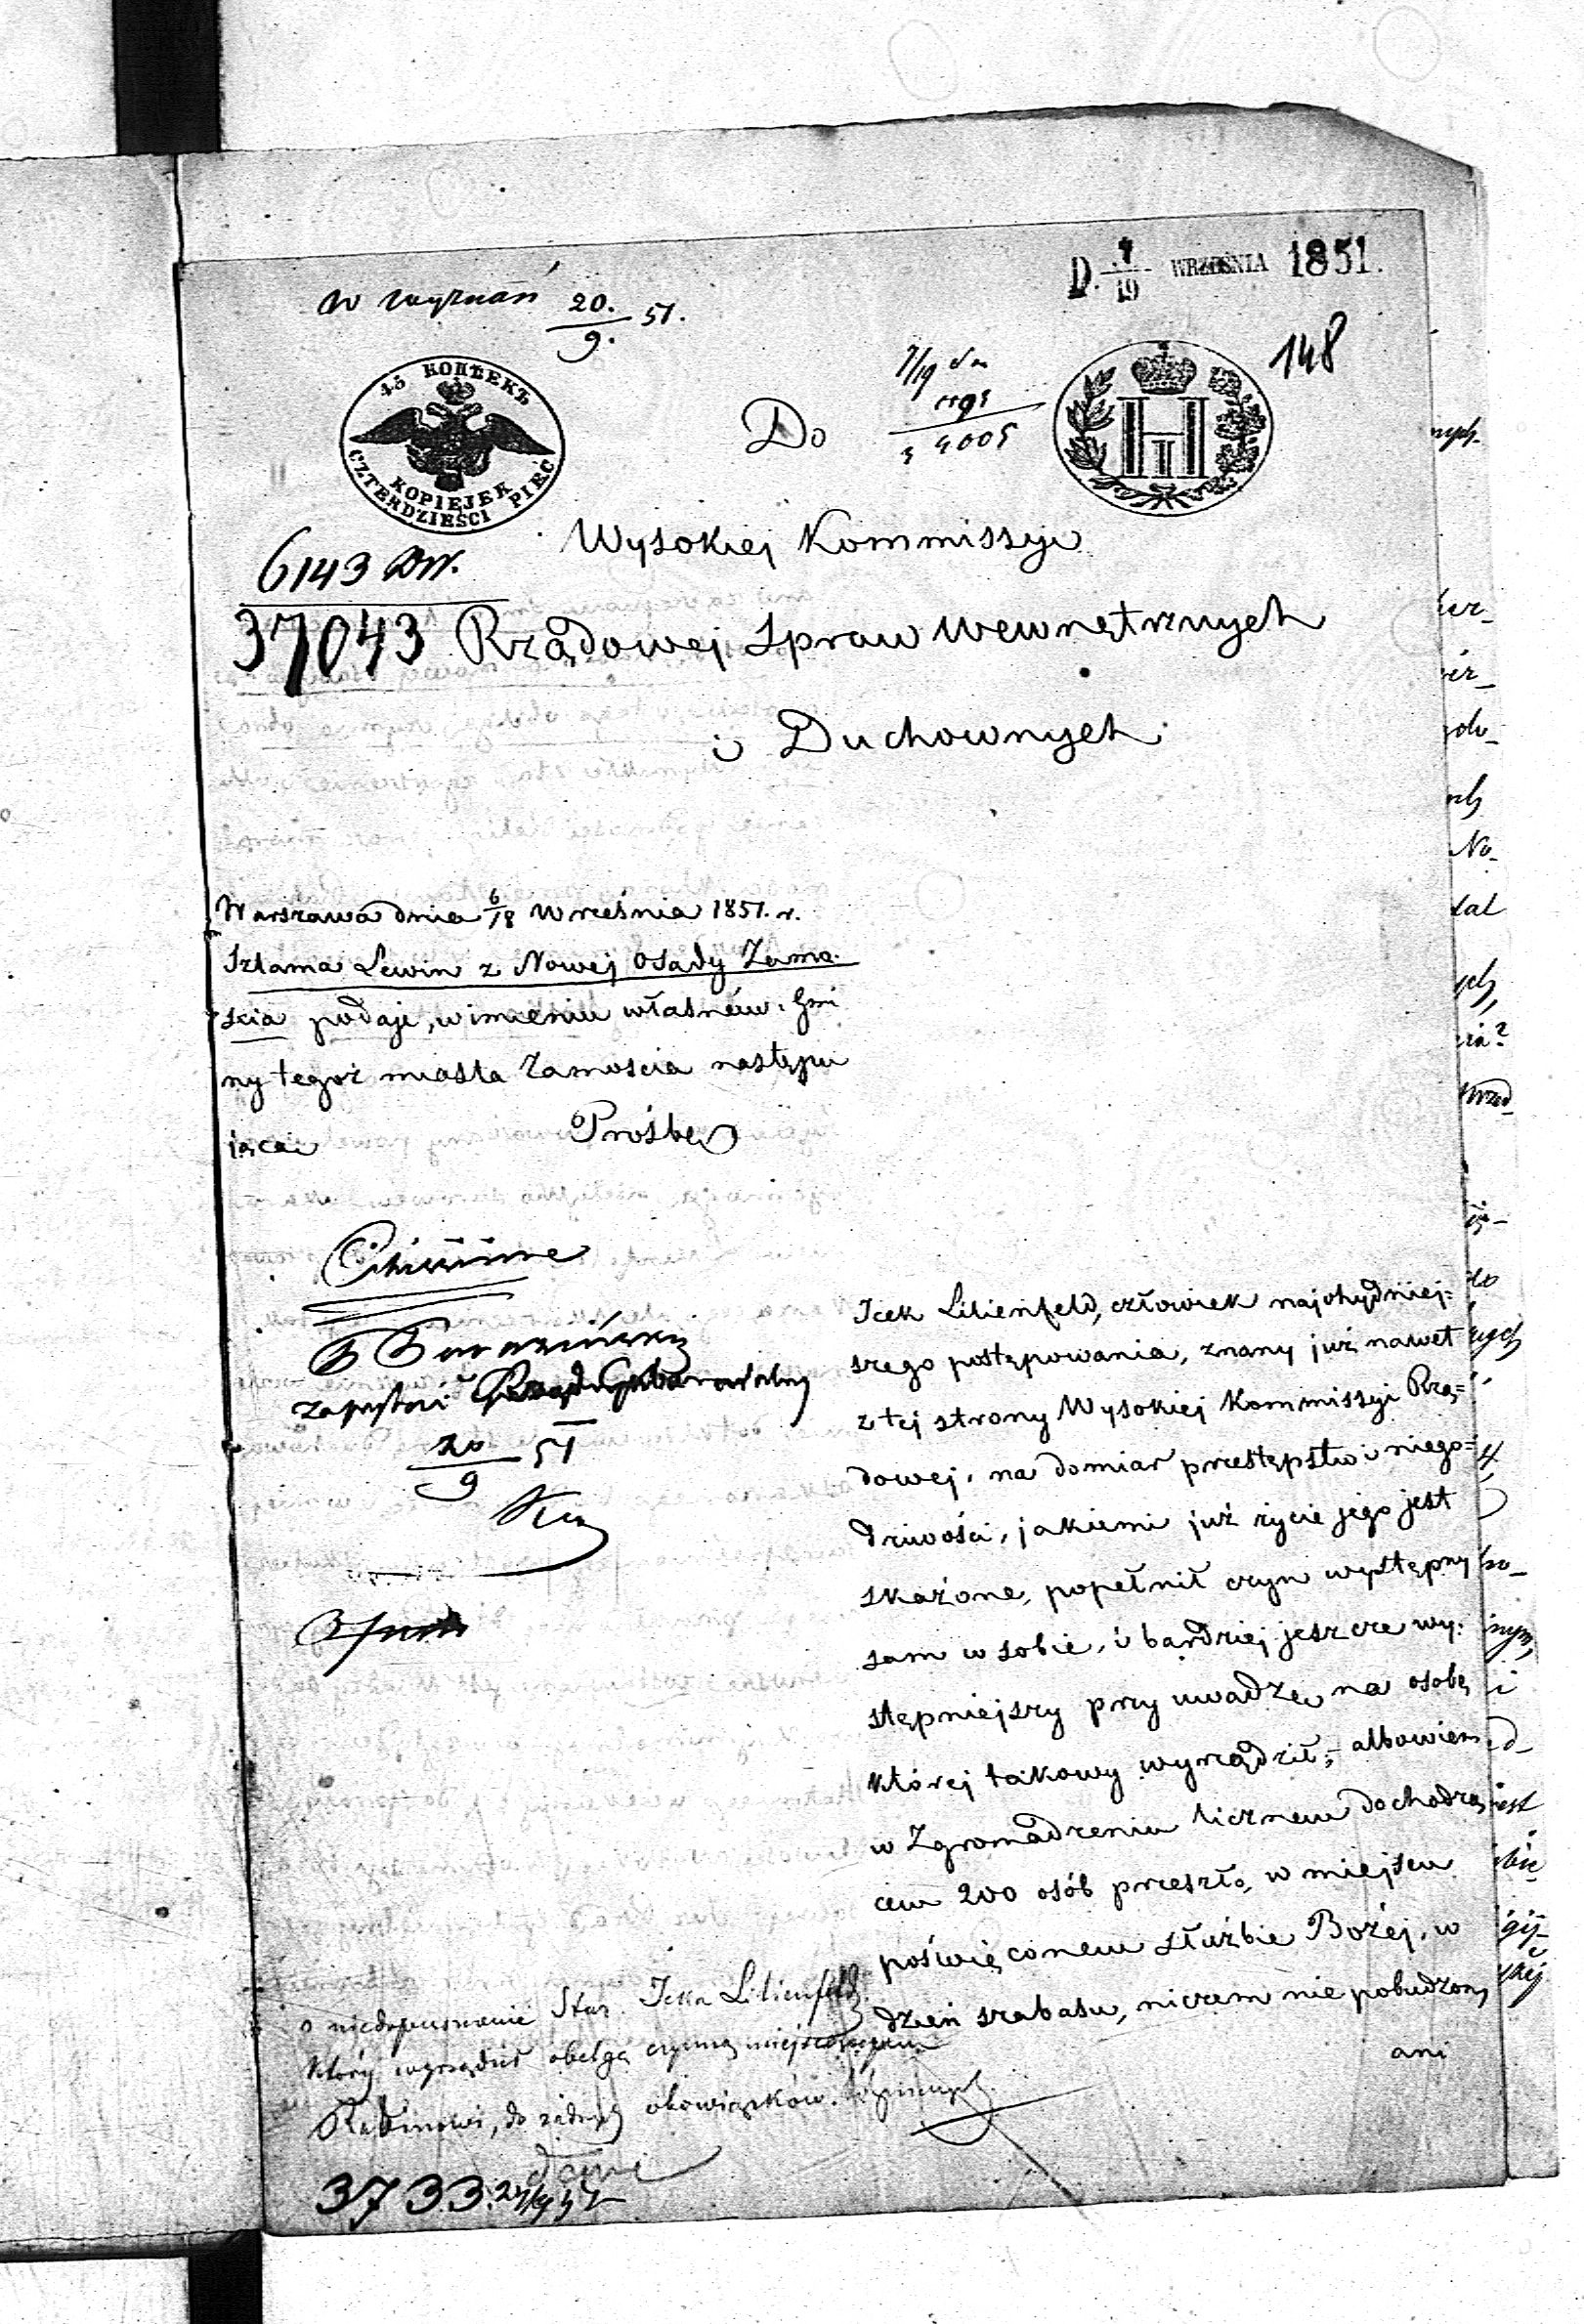 D. 7/19 WRZEŚNIA 1851.
W wyznań 20./9. 51.
148
7/19
4005
45 КОПѢЕКЪ
KOPIEJEK
CZTERDZIEŚCI PIĘĆ
Do
6143 Dw.
Wysokiej Kommissyi
37043 Rządowej Spraw Wewnętrznych
i Duchownych.
Warszawa dnia 6/18 Września 1851. r.
Szlama Lewin z Nowej Osady Zamo-
scia podaje, w imieniu własném i Gmi
ny tegoż miasta Zamościa następu
jąca Prośbę
Icek Lilienfeld, człowiek najohydniej=
szego postępowania, znany już nawet
z tej strony Wysokiej Kommissyi Rzą=
dowej, na domiar przestępstw i niego=
dziwości, jakiemi już życie jego jest
skażone, popełnił czyn występny
sam w sobie, i bardziej jeszcze wy-
stępniejszy przy uwadze na osobę
której takowy wyrządził; albowiem
w Zgromadzeniu licznem dochodzą
cem 200 osób przeszło, w miejscu
poświęconem służbie Bożej, w
dzień szabasu, niczem nie pobudzony
ani
20/9 51
o niedopuszczenie Star. Icka Lilienfeld
który wyrządził obelgę czynną miejscowemu
Rabinowi, do żadnych obowiązków
3733.